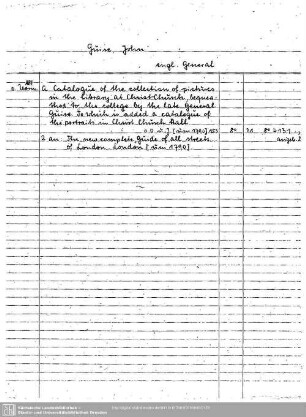 Guise, John
engl. General
A Catalogue of the collection of pictures
in the library at Christ Church, beques-
thed to the college by the late General
Guise. To which is added a catalogue of
the portraits in Christ Church Hall
o.O. u. J. [um 1790] 8°
2 an: The new complete Guide of all streets
of London. London [um 1790]
angeb. 2
Sächsische Landesbibliothek -
Staats- und Universitätsbibliothek Dresden